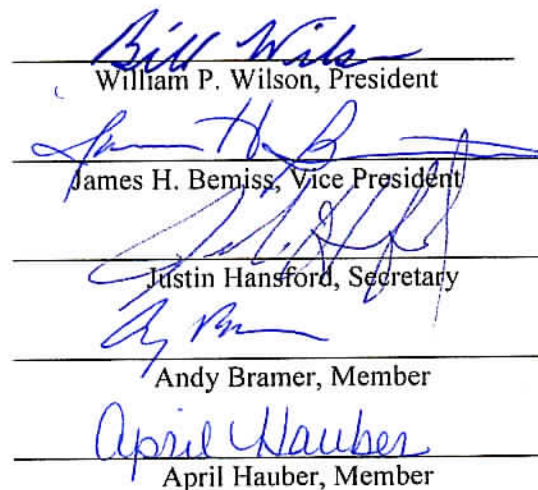 Bill Wilson
William P. Wilson, President
James H. Bemiss, Vice President
Justin Hansford, Secretary
Andy Bramer, Member
April Hauber
April Hauber, Member